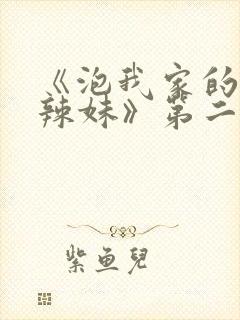 《泡我家的
辣妹》第二
紫鱼儿